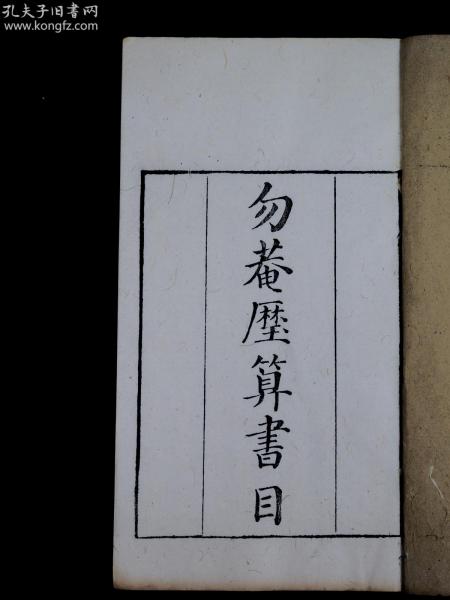 孔夫子旧书网
www.kongfz.com
勿菴歴算書目